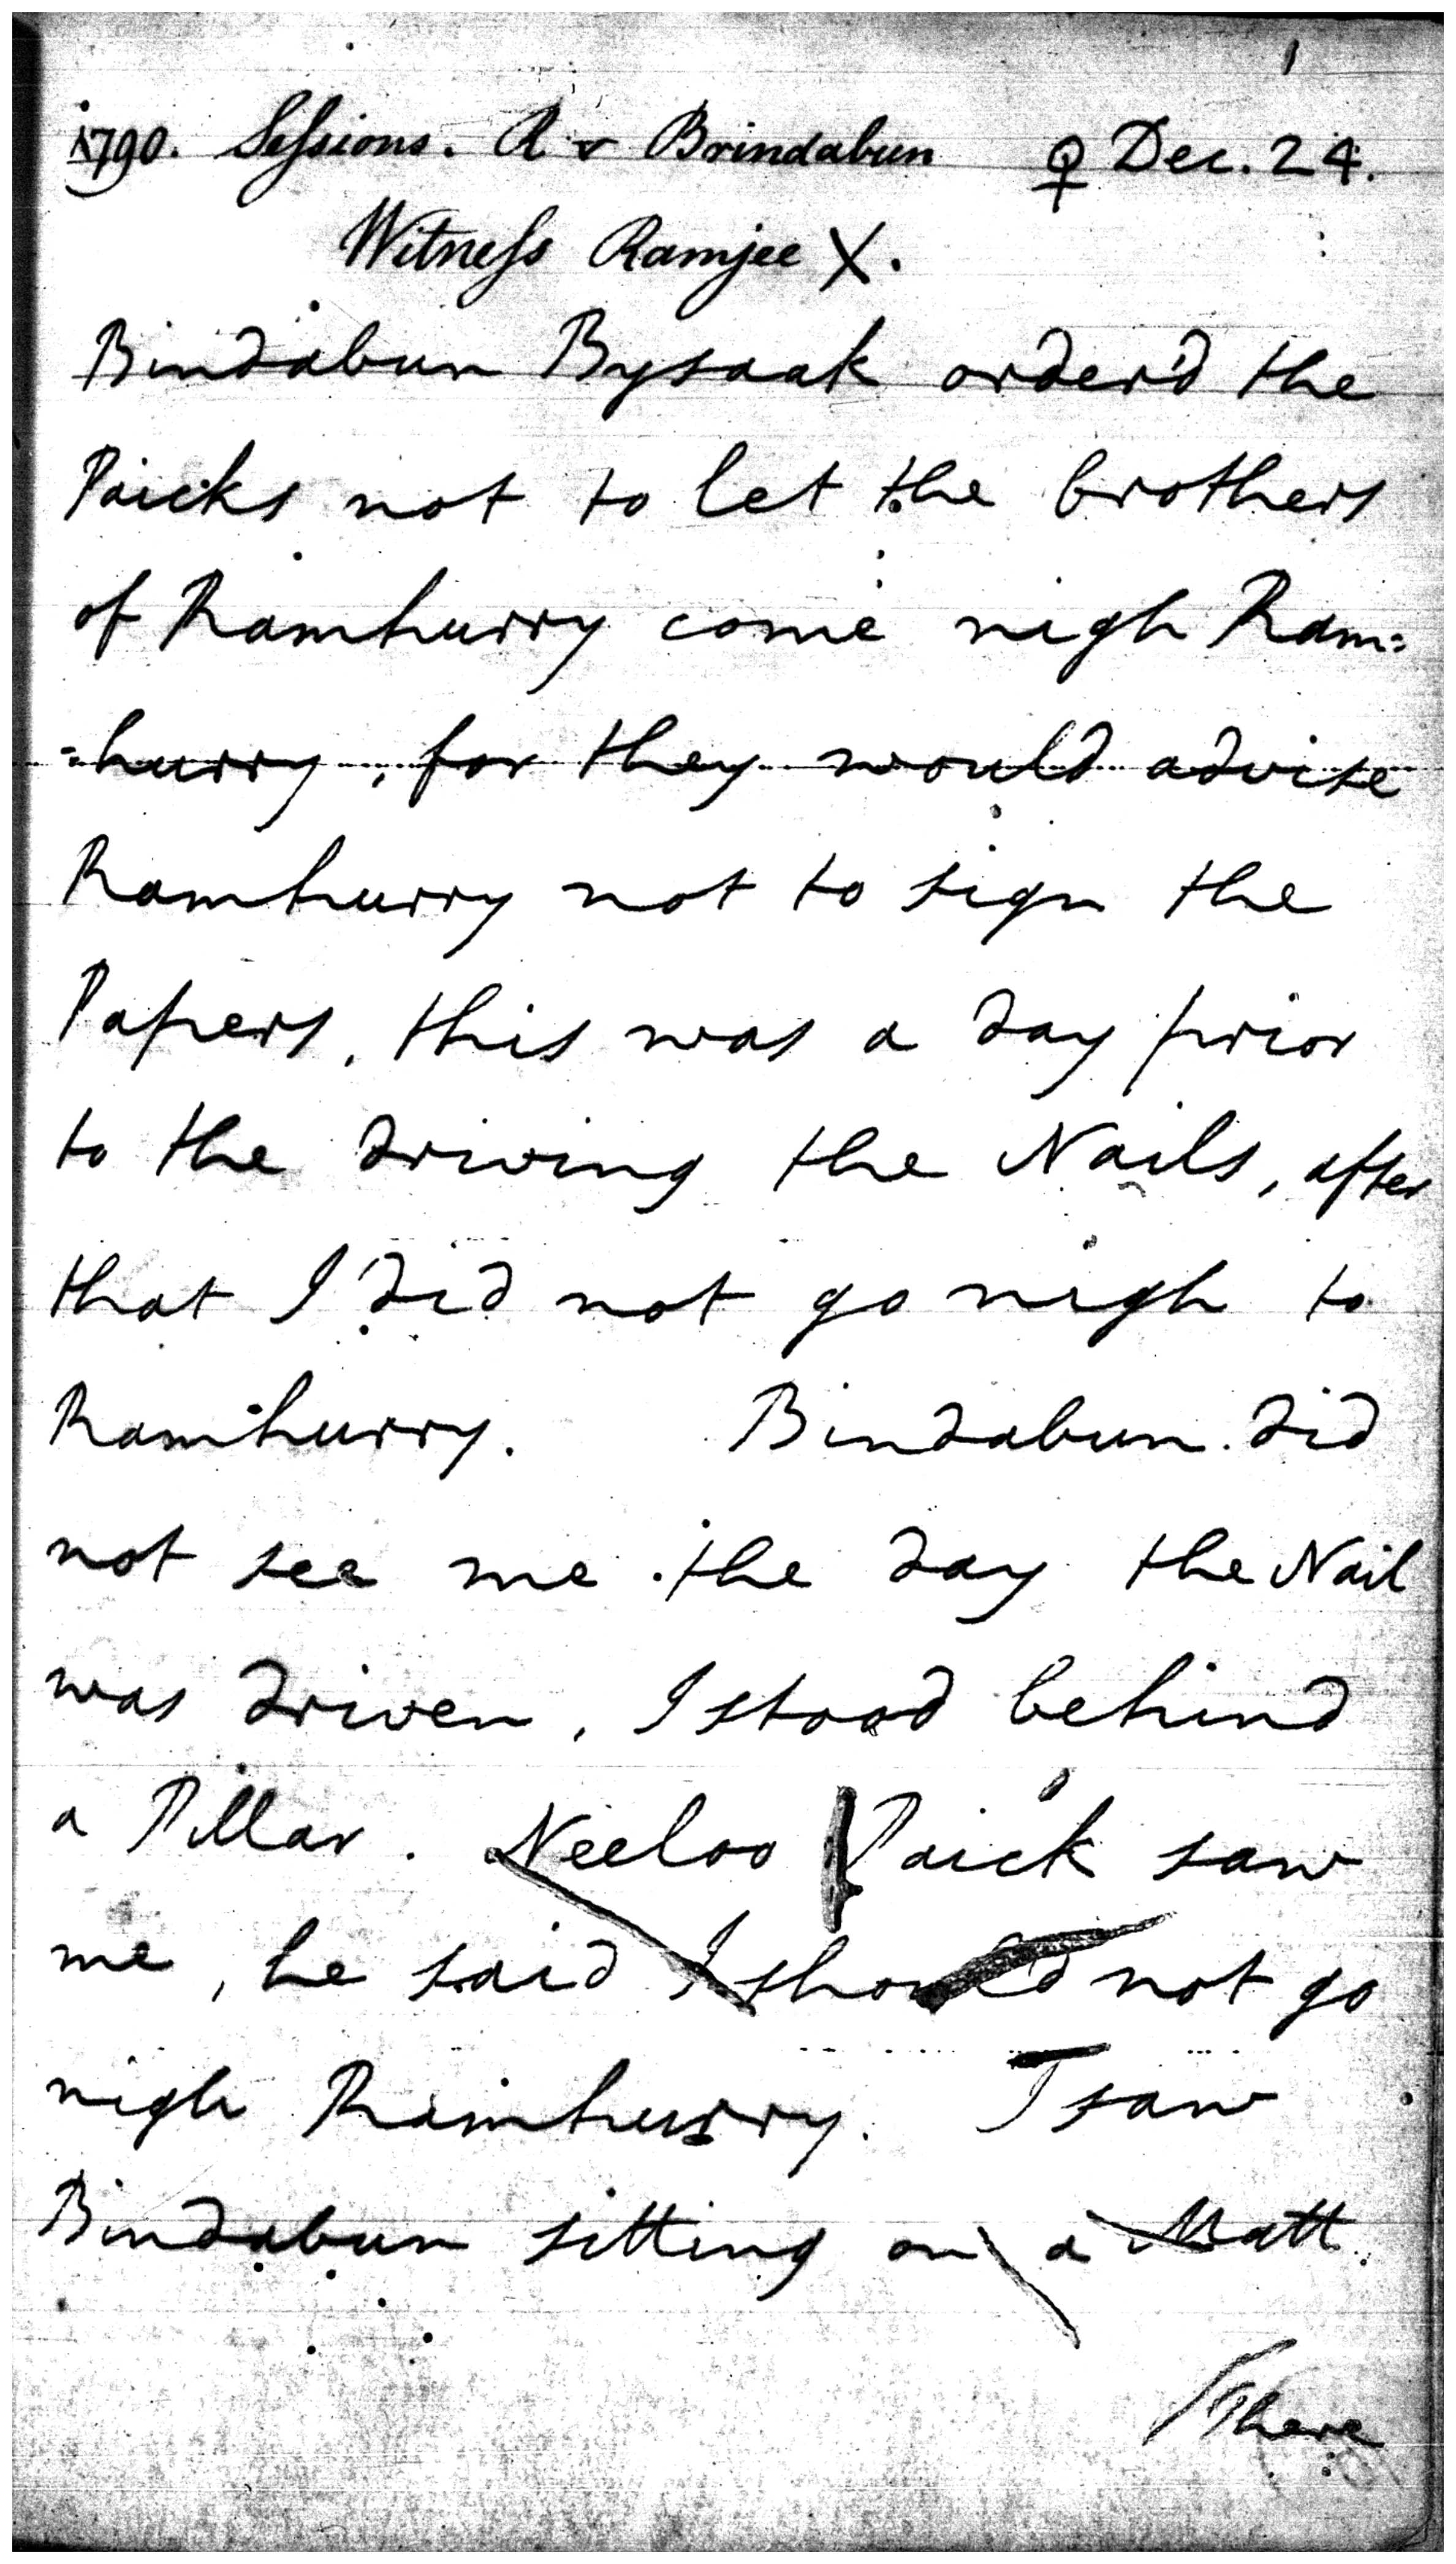 1790. Sessions. R v Brindabun ♀ Dec. 24.
Witness Ramjee X.
Bindabun Bysaak order'd the
Paicks not to let the brothers
of Ramhurry come nigh Ram=
=hurry, for they would advise
Ramhurry not to sign the
Papers, this was a day prior
to the driving the Nails, after
that I did not go nigh to
Ramhurry. Bindabun did
not see me the day the Nail
was driven, I stood behind
a Pillar. Neeloo Paick saw
me, he said I should not go
nigh Ramhurry. I saw
Bindabun sitting on a Matt.
/There